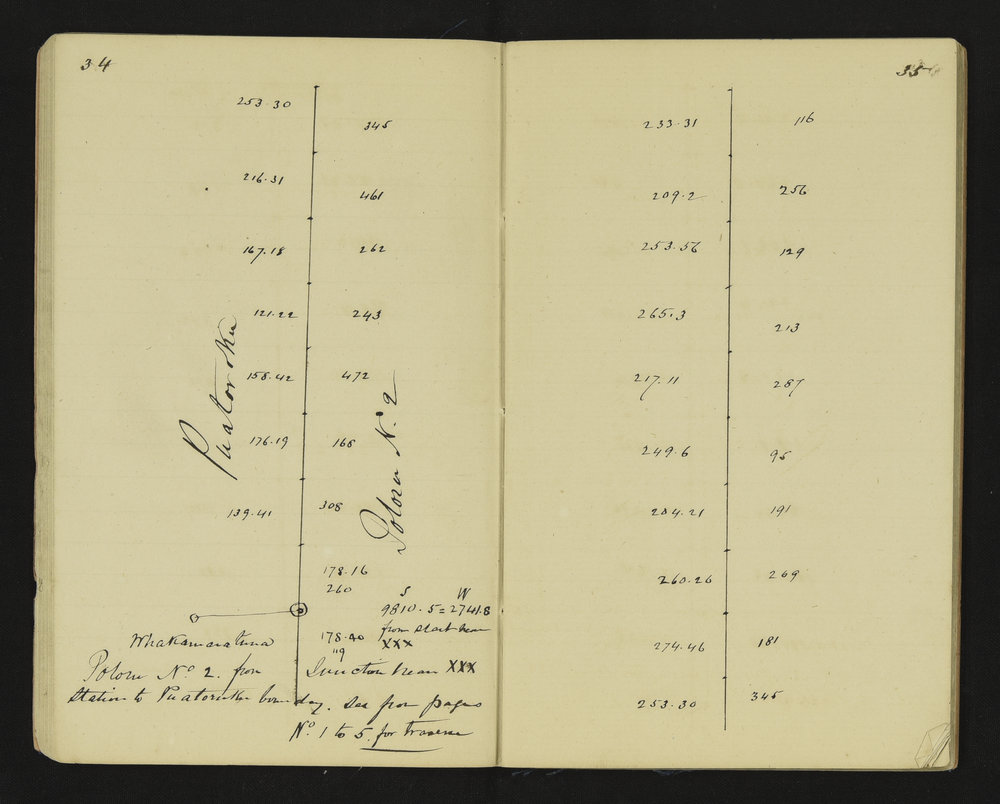 34
253.30
345
216.31
461
167.18
262
121.22
243
158.42
472
176.19
168
Puatoroku
Poloru No. 2
139.41
308
178.16
260
S W
9810.5=2741.8
from start
178.40
XXX
119
Whakamaratuna
Junction XXX
Poloru No 2. from
Station to bounday. See from pages
No. 1 to 5. for traverse
35
233.31
116
209.2
256
253.56
129
265.3
213
217.11
287
249.6
95
204.21
191
260.26
269
274.46
181
253.30
345